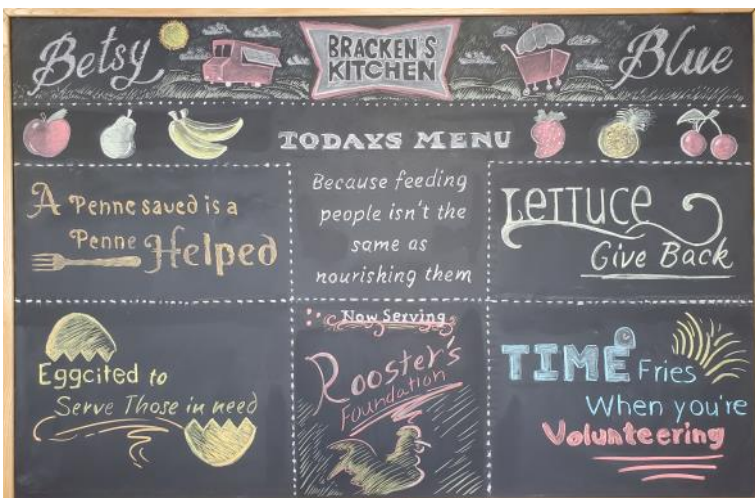 Betsy
BRACKEN'S
KITCHEN
Blue
TODAYS MENU
A Penne saved is a
Penne Helped
Because feeding
people isn't the
same as
nourishing them
LETTUCE
Give Back
Eggcited to
Serve Those in need
Now Serving
Rooster's
Foundation
TIME Fries
When you're
Volunteering